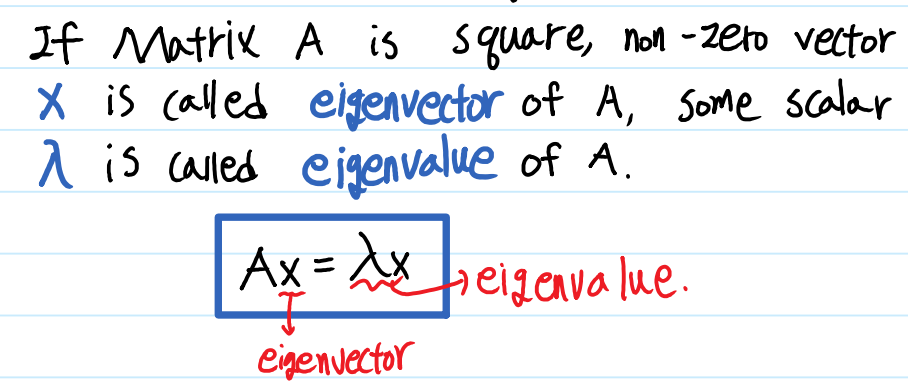 If Matrix A is square, non-zero vector
x is called eigenvector of A, some scalar
λ is called eigenvalue of A.
Ax = λx
eigenvalue.
eigenvector